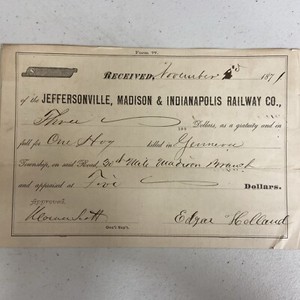 Form W.
Received, November 187 1
of the JEFFERSONVILLE, MADISON & INDIANAPOLIS RAILWAY CO.,
Three Dollars, as a gratuity and in
full for One Hog killed in
Township, on said Road, Mile Madison Branch
and appraised at Five Dollars.
Approved.
Edgar Holland